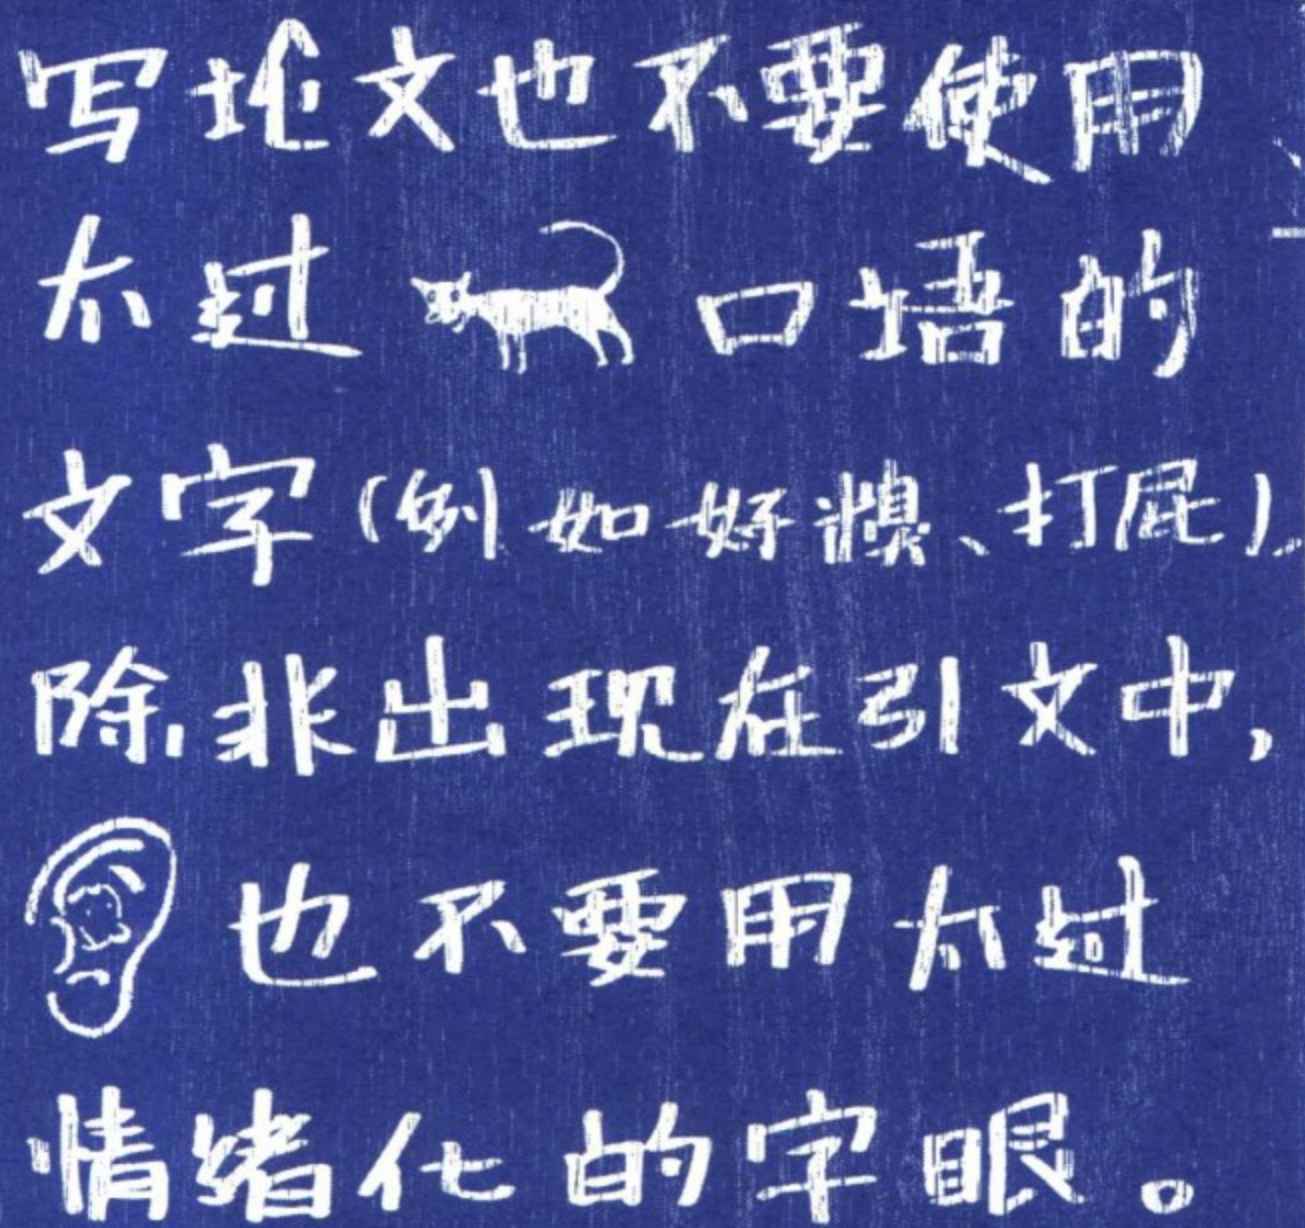 写论文也不要使用
太过口语的
文字(例如好糗、打屁),
除非出现在引文中,
也不要用太过
情绪化的字眼。